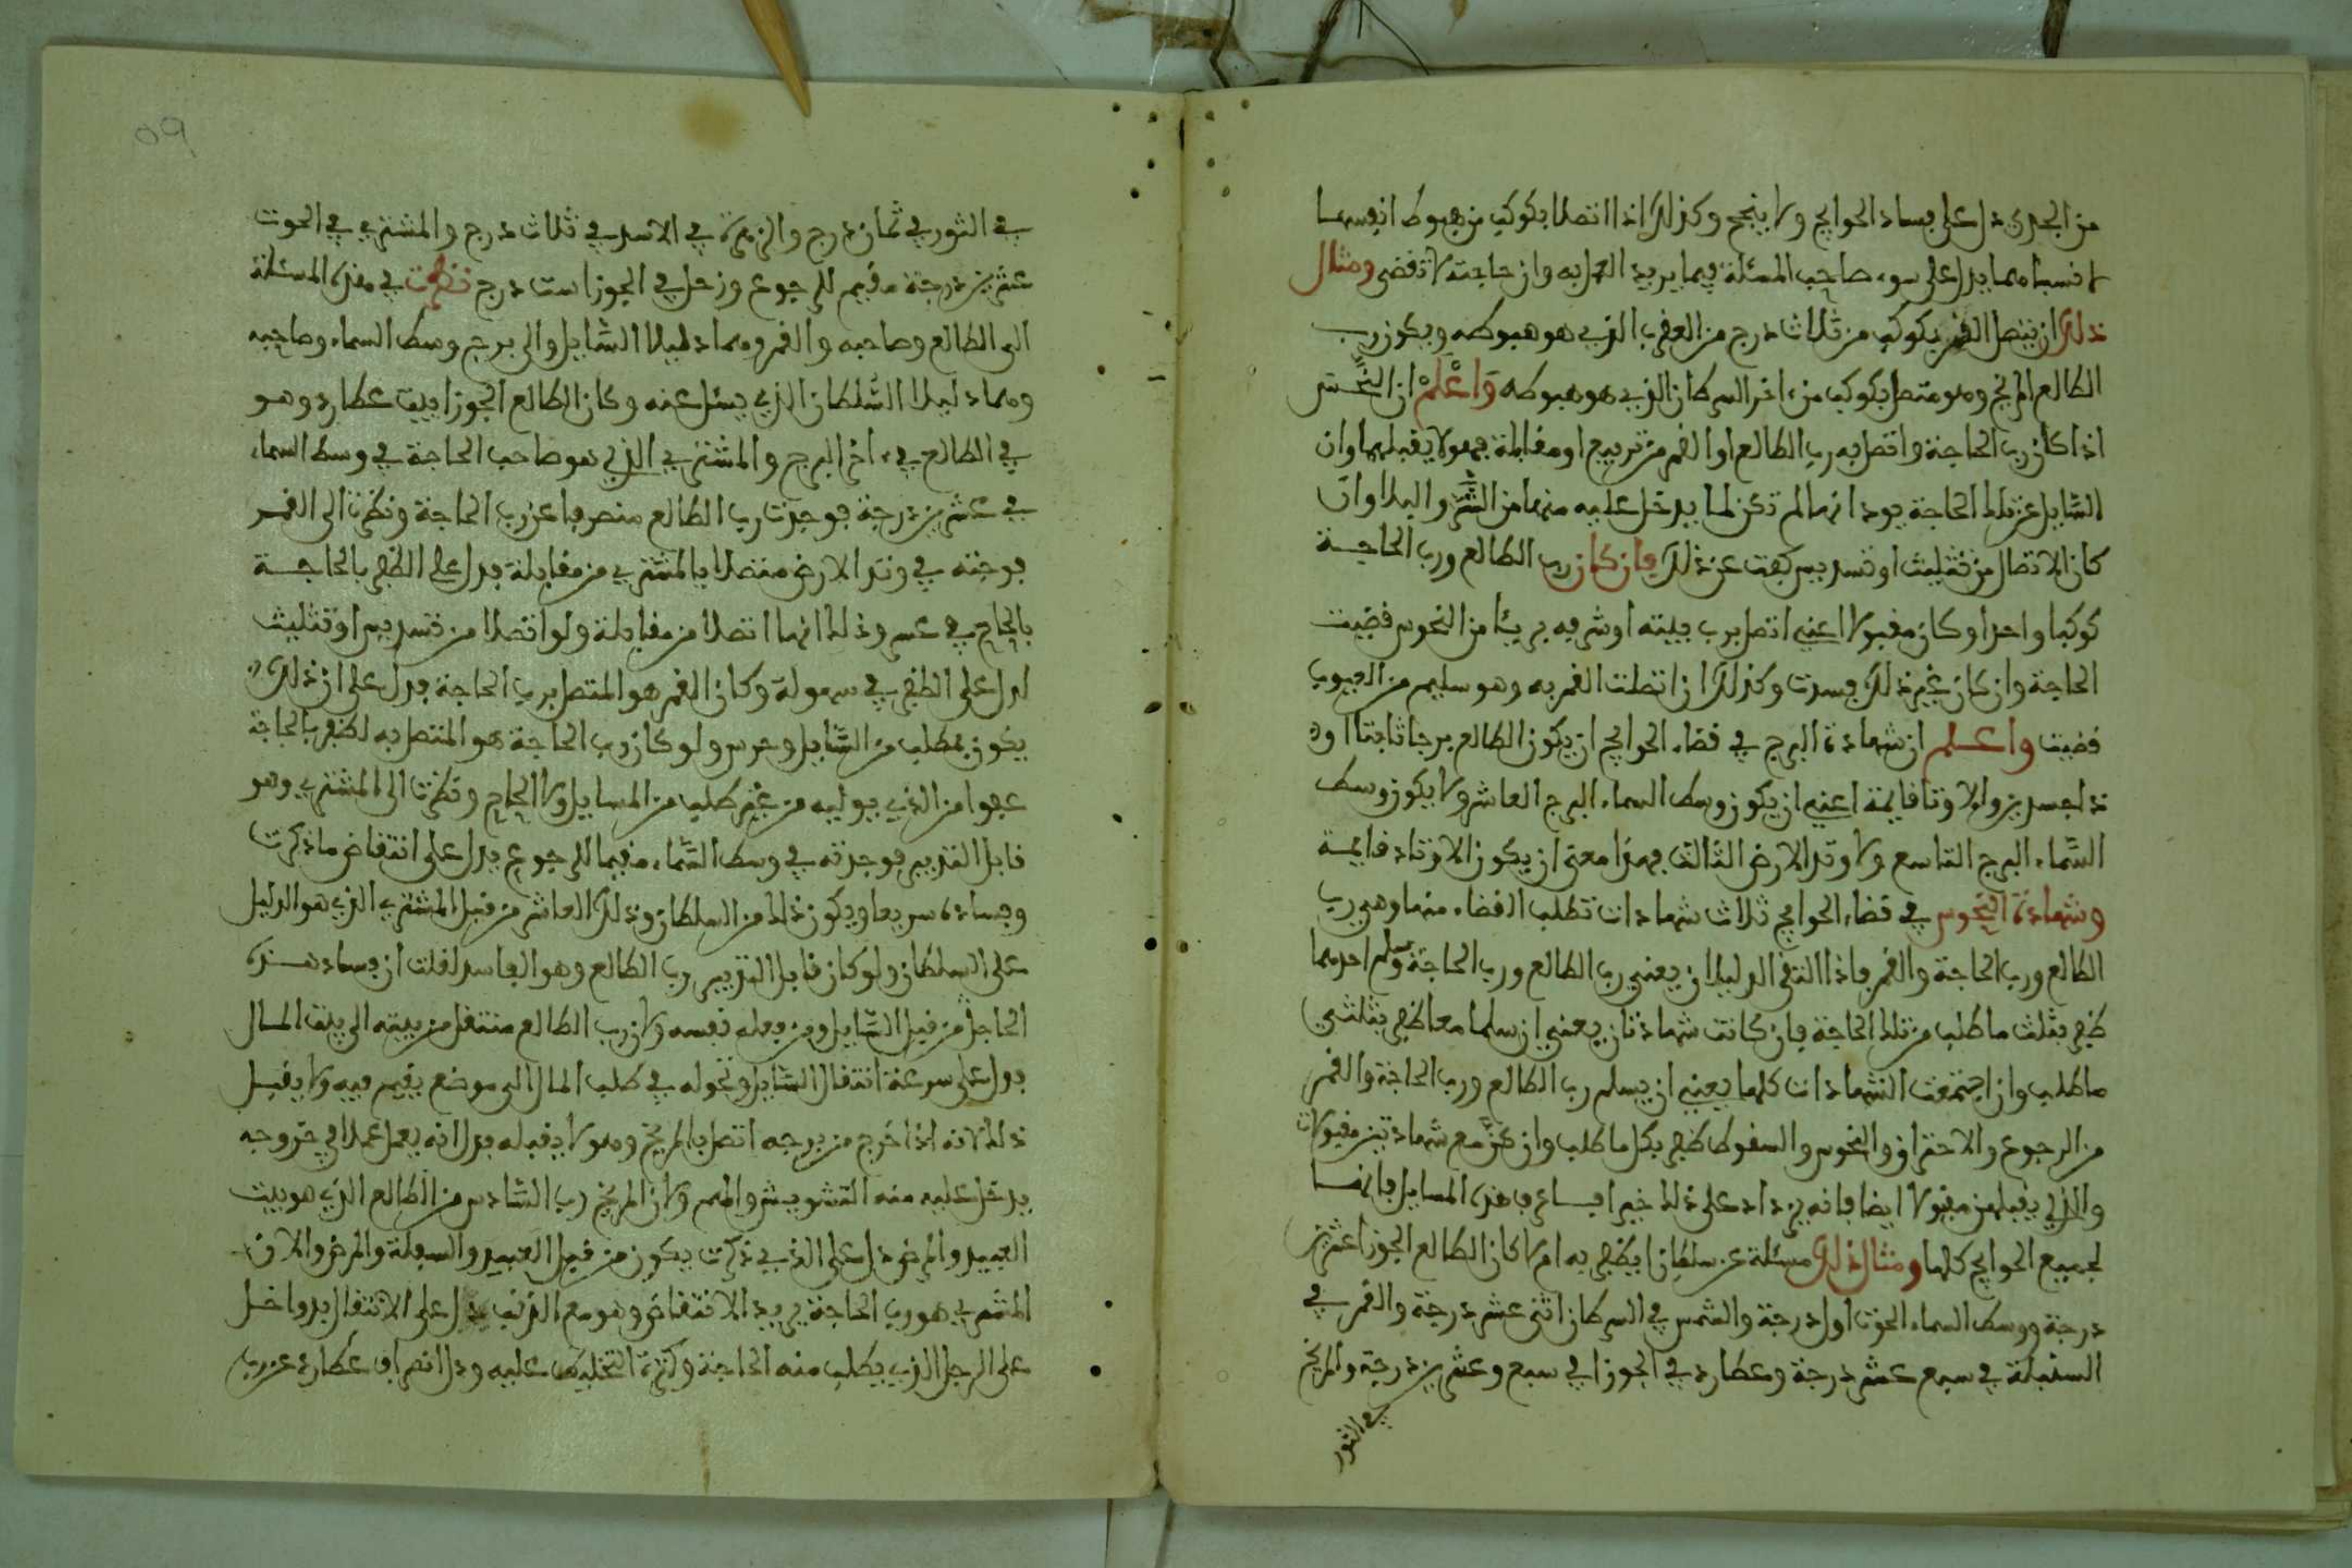 من الجدي دل على فساد الحوايج ولا ينجح وكذلك اذا اتصلا بكوكب من هبوط انفسهما
لا نسباه مما يدل على سوء صاحب المسئلة فيما يريد العمل به وان حاجته لا تفضى ومثال
ذلك ان يتصل القمر بكوكب من ثلاث درج من العقرب الذي هو هبوطه ويكون رب
الطالع المريخ وهو متصل بكوكب من اخر السرطان الذي هو هبوطه وَاعْلَمْ ان النحس
اذا كان رب الحاجة واتصل به رب الطالع او القمر من تربيع او مقابلة فهو لا يقبلهما وان
السّايل عن تلك الحاجة يود انها لم تكن لما يدخل عليه منها من الشّر والبلا وان
كان الاتصال من تثليث او تسديس كفت عن ذلك فان كان رب الطالع ورب الحاجة
كوكبا واحدا وكان مقبولا اعني اتصل برب بيته او شرفه بريئا من النحوس قضيت
الحاجة وان كان غير ذلك فسدت وكذلك ان اتصلت القمر به وهو سليم من العيوب
قضيت واعلم ان شهادة البرج في قضاء الحوايج ان يكون الطالع برجا ثابتا او
ذا جسدين والاوتاد قايمة اعني ان يكون وسط السماء البرج العاشر ولا يكون وسط
السّماء البرج التاسع ولا وتد الارض الثالث فهذا معنى ان يكون الاوتاد قايمة
وشهادة النحوس في قضاء الحوايج ثلاث شهادات تطلب القضاء منها وهي رب
الطالع ورب الحاجة والقمر فاذا التقى الدليلان يعني رب الطالع ورب الحاجة وسلم احدهما
ظفر بثلث ما طلب من تلك الحاجة فان كانت شهادتان يعني ان سلما معا ظفر بثلثي
ما طلب وان اجتمعت الشهادات كلها يعني ان يسلم رب الطالع ورب الحاجة والقمر
من الرجوع والاحتراق والنحوس والسقوط ظفر بكل ما طلب وان كنّ مع شهادتين مقبولات
والذي يقبلهن مقبولا ايضا فانه يزداد على ذلك خيرا فساع في هذه المسايل فانها
لجميع الحوايج كلها ومثال ذلك مسئلة عن سلطان ايظفر به ام لا كان الطالع الجوزا عشرين
درجة ووسط السماء الحوت اول درجة والشمس في السرطان اثنى عشر درجة والقمر في
السنبلة في سبع عشر درجة وعطارد في الجوزا في سبع وعشرين درجة والمريخ
في الثور
09
في الثور في ثمان درج والزهرة في الاسد في ثلاث درج والمشتري في الحوت
عشرين درجة مقيم للرجوع وزحل في الجوزا ست درج نظرت في هذه المسئلة
الى الطالع وصاحبه والقمر وهما دليلا السّايل والى برج وسط السماء وصاحبه
وهما دليلا السّلطان الذي يسئل عنه وكان الطالع الجوزا بيت عطارد وهو
في الطالع في اخر البرج والمشتري الذي هو صاحب الحاجة في وسط السماء
في عشرين درجة فوجدت رب الطالع منصرفا عن رب الحاجة ونظرت الى القمر
فوجدته في وتد الارض متصلا بالمشتري من مقابلة فدل على الظفر بالحاجة
بالحاح في عسر وذلك انهما اتصلا من مقابلة ولو اتصلا من تسديس او تثليث
لدل على الظفر في سهولة وكان القمر هو المتصل برب الحاجة فدل على ان ذلك
يكون بمطلب من السّايل وحرص ولو كان رب الحاجة هو المتصل به لظفر بالحاجة
عفوا من الذي يوليه من غير طلب من المسايل ولا الحاح ونظرت الى المشتري وهو
قابل التدبير فوجدته في وسط السّماء مقيما للرجوع يدل على انتقاض ما ذكرت
وفساده سريعا ويكون ذلك من السلطان وذلك العاشر من قبل المشتري الذي هو الدليل
على السلطان ولو كان قابل التدبير رب الطالع وهو الفاسد لقلت ان فساد هذه
الحاجة من قبل السّايل ومن فعله نفسه ولان رب الطالع منتقل من بيته الى بيت المال
فدل على سرعة انتقال السّايل وتحوله في طلب المال الى موضع يقيم فيه ولا يقبل
ذلك لانه اذا خرج من برجه اتصل بالمريخ وهو لا يقبله فدل انه يعمل عملا في خروجه
يدخل عليه منه التشويش والهم ولان المريخ رب السّادس من الطالع الذي هو بيت
العبيد والمرض دل على الذي ذكرت يكون من قبل العبيد والسفلة والمرض ولان
المشتري هو رب الحاجة يريد الانتقاض وهو مع الذنب دل على الانتقال يدوا خل
على الرجل الذي يطلب منه الحاجة وكثرة التخليط عليه ودل انصراف عطارد عن رب